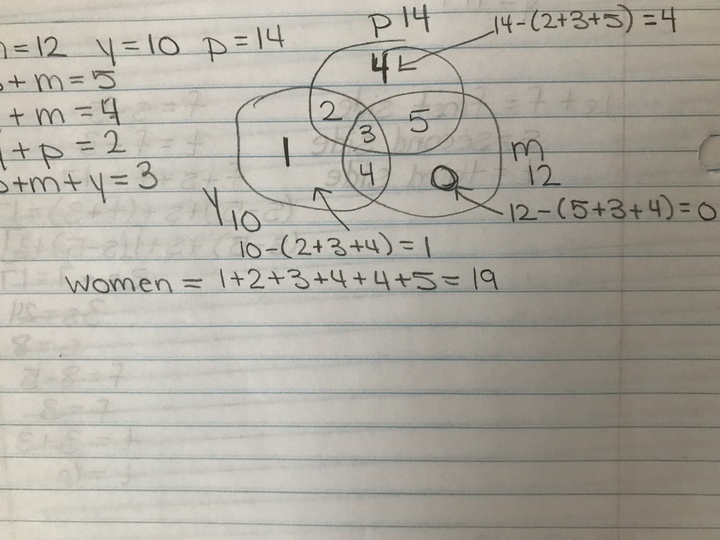 p 14
14-(2+3+5)=4
=12 y=10 p=14
+m=5
+m=4
+p=2
+m+y=3
4
2
3
5
1
4
0
m
12
y 10
12-(5+3+4)=0
10-(2+3+4)=1
women = 1+2+3+4+4+5=19